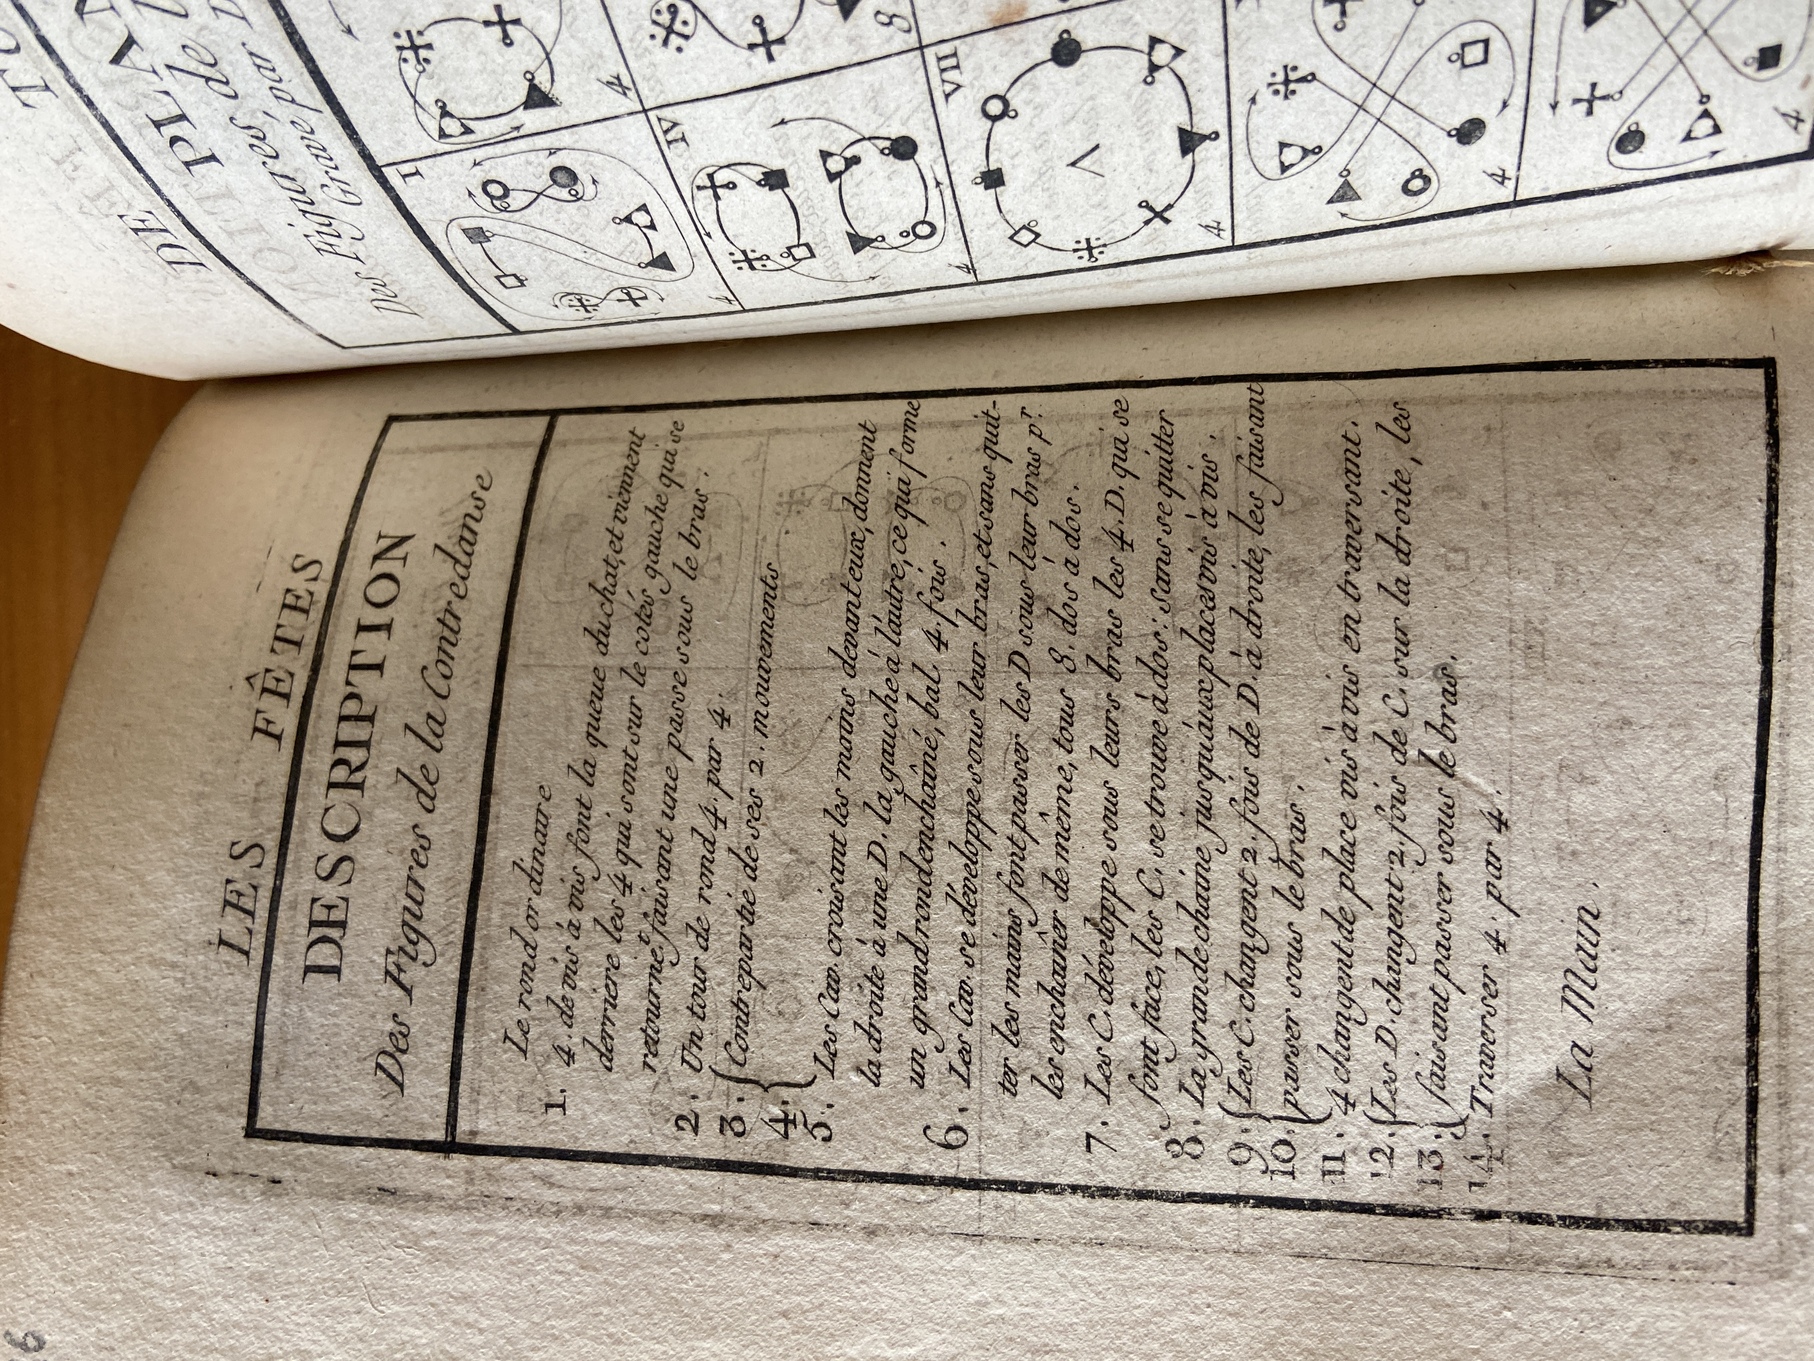 LES FÊTES
DESCRIPTION
Des Figures de la Contredanse
Le rond ordinaire
1. 4. de vis à vis font la queue du chat, et viennent
derriere les 4 qui sont sur le cotés gauche qui se
retourneᵗ faisant une passe sous le bras.
2. Un tour de rond 4. par 4.
3. { Contrepartie de ses 2. mouvements
4. {
5. Les Cav. croisant les mains devant eux, donnent
la droite à une D. la gauche à l'autre, ce qui forme
un grand rond enchaîné, bal 4. fois.
6. Les Cav. se développe sous leur bras, et sans quit-
ter les mains font passer les D sous leur bras pʳ.
les enchaîner de même, tous 8. dos à dos.
7. Les C. développe sous leurs bras les 4. D. qui se
font face, les C. se trouve à dos: sans se quitter
8. La grande chaine jusqu'aux places vis à vis.
9. { Les C. changent 2. fois de D. à droite, les faisant
10. { passer sous le bras.
11. 4 changent de place vis à vis en traversant.
12. { Les D. changent 2. fois de C. sur la droite, les
13. { faisant passer sous le bras.
14. Traverser 4. par 4.
La Main.
6
DE
PLA
Des Figures de
Gravé par
I
4
4
IV
4
8
VII
4
4
4